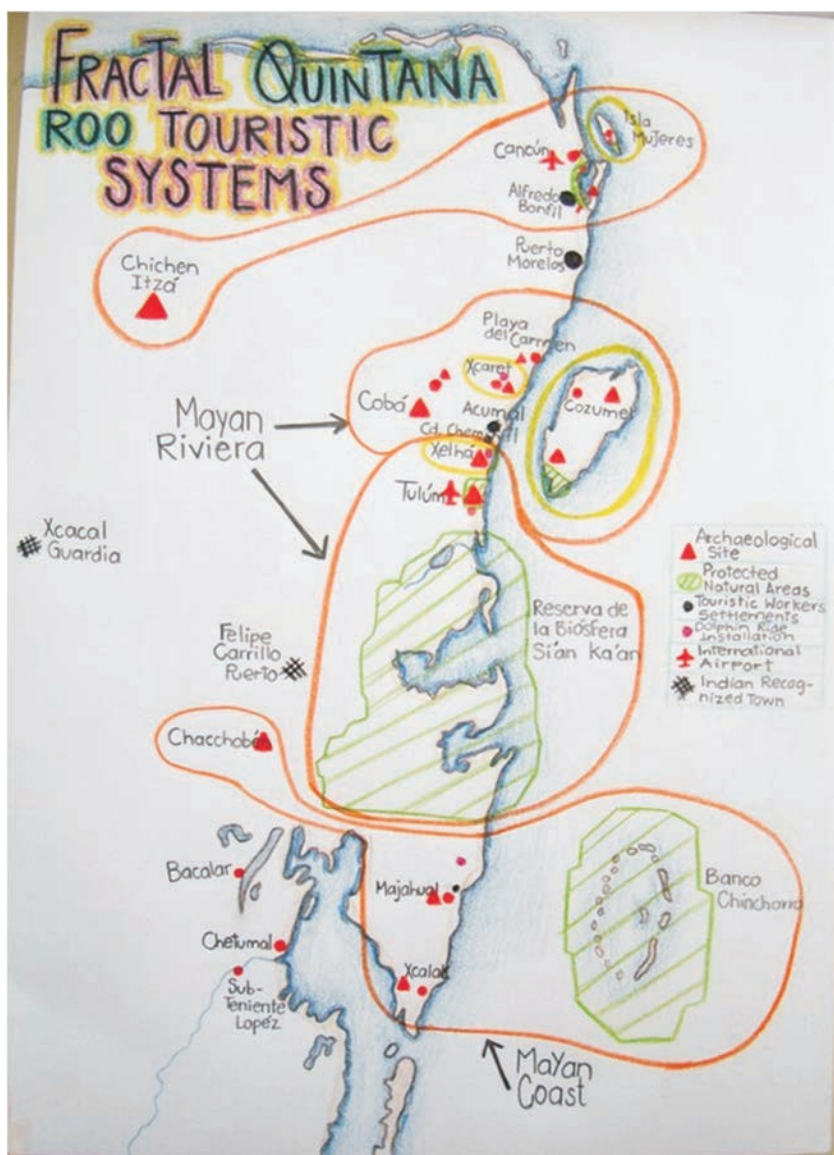 FRACTAL QUINTANA
ROO TOURISTIC
SYSTEMS
Isla
Mujeres
Cancún
Alfredo
Bonfil
Puerto
Morelos
Chichen
Itzá
Playa
del Carmen
Xcaret
Cobá
Acumal
Cozumel
Cd. Chemuyil
Mayan
Riviera
Xelhá
Tulúm
Xcacal
Guardia
Archaeological
Site
Protected
Natural Areas
Touristic Workers
Settlements
Dolphin Ride
Installation
International
Airport
Indian Recog-
nized Town
Reserva de
la Biósfera
Si'an Ka'an
Felipe
Carrillo
Puerto
Chacchobé
Bacalar
Majahual
Banco
Chinchorro
Chetumal
Xcalak
Sub-
Teniente
Lopéz
Mayan
Coast